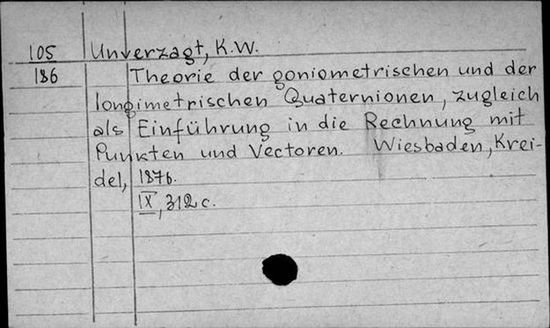 105 Unverzagt, K.W.
186 Theorie der goniometrischen und der
longimetrischen Quaternionen, zugleich
als Einführung in die Rechnung mit
Punkten und Vectoren. Wiesbaden, Krei-
del, 1876.
IX, 312 c.